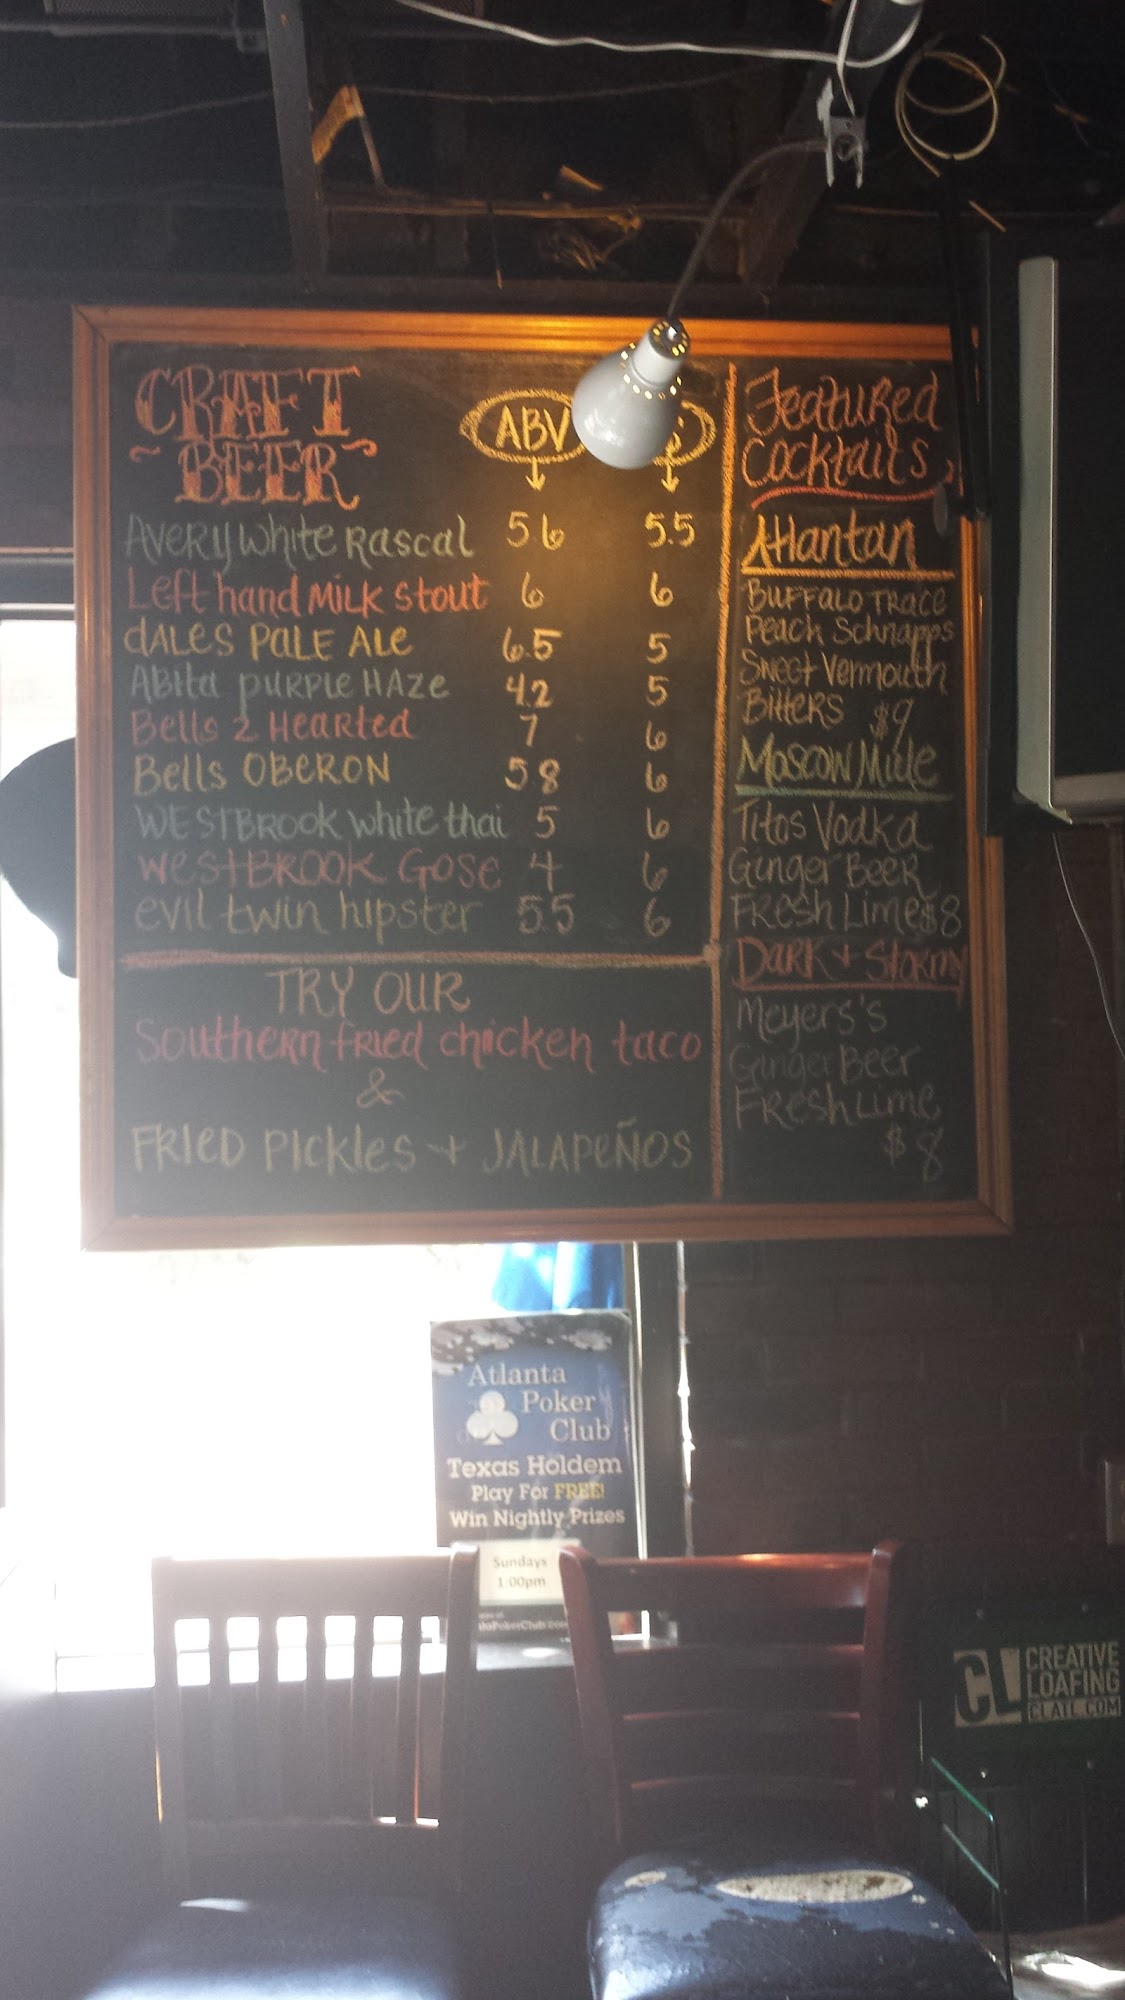 CRAFT
BEER
ABV
$
Avery White Rascal 5.6 5.5
Left hand Milk Stout 6 6
dALes PALE Ale 6.5 5
Abita purple Haze 4.2 5
Bells 2 Hearted 7 6
Bells OBERON 5.8 6
WESTBROOK white thai 5 6
WESTBROOK Gose 4 6
evil twin hipster 5.5 6
TRY OUR
Southern fried chicken taco
&
FRIED PICKLES + JALAPEÑOS
Featured
Cocktails
Atlantan
BUFFALO TRACE
Peach Schnapps
Sweet Vermouth
Bitters $9
Moscow Mule
Titos Vodka
Ginger Beer
Fresh Lime $8
Dark + Stormy
Meyers's
Ginger Beer
Fresh Lime
$8
Atlanta
Poker
Club
Texas Holdem
Play For FREE!
Win Nightly Prizes
Sundays
1:00pm
CL CREATIVE
LOAFING
CLATL.COM